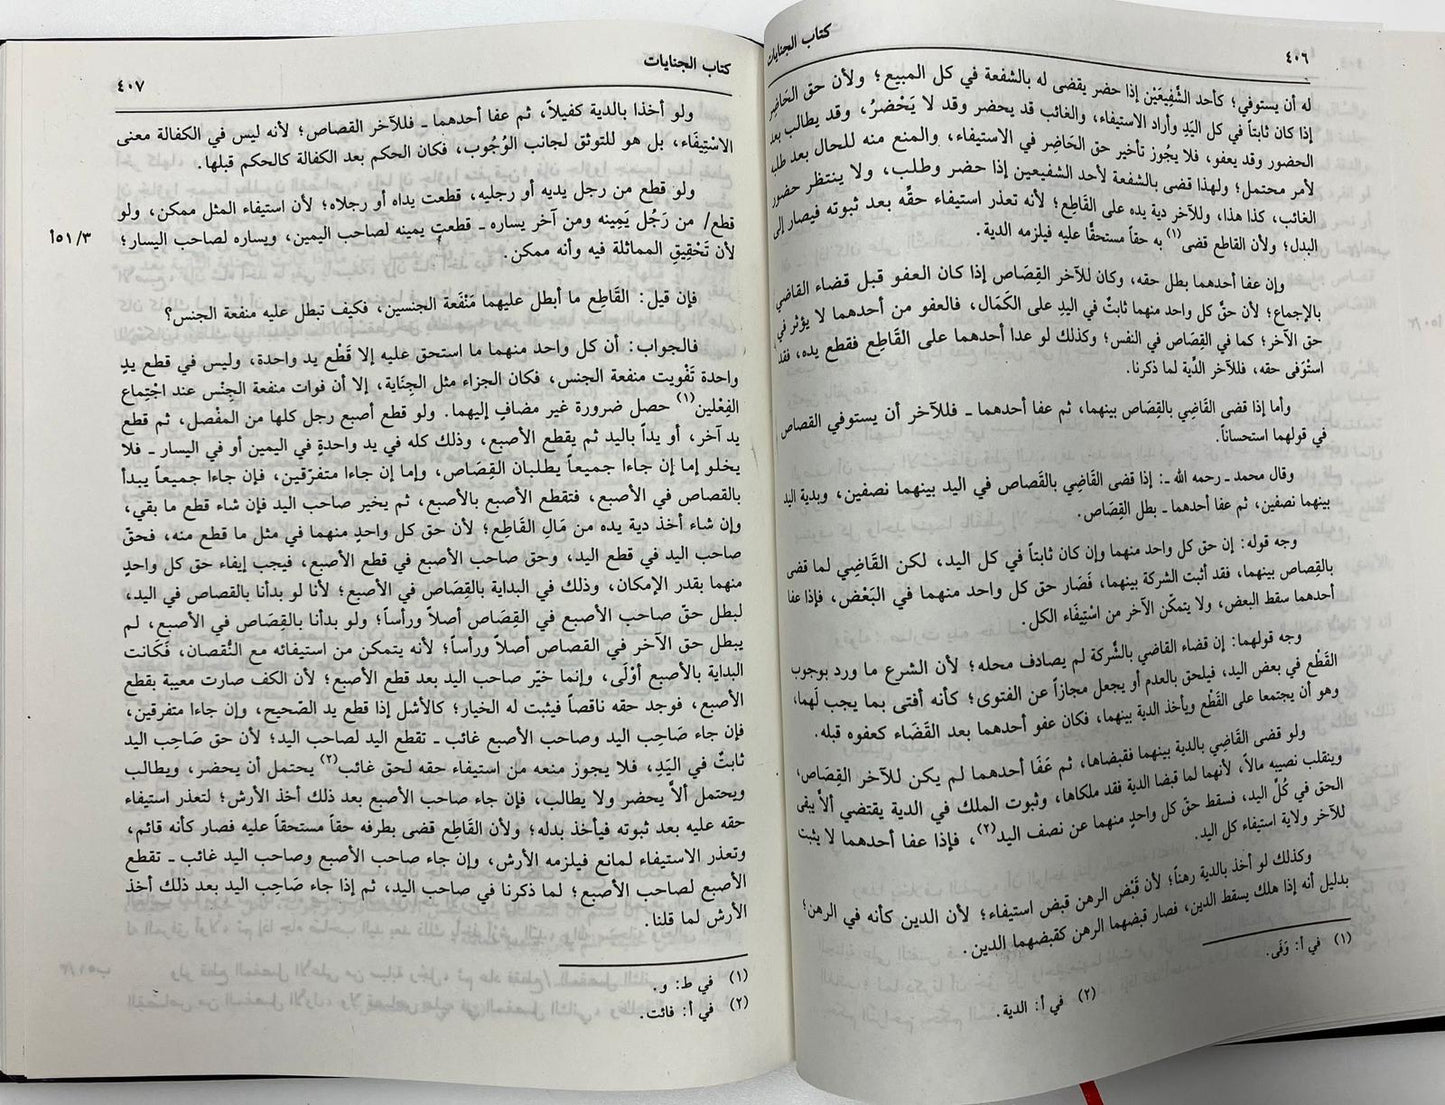 ٤٠٦
كتاب الجنايات
له أن يستوفي؛ كأحد الشَّفِيعَيْن إذا حضر يقضى له بالشفعة في كل المبيع؛ ولأن حق الحَاضِر
إذا كان ثابتاً في كل اليَدِ وأراد الاستيفاء، والغائب قد يحضر وقد لا يَحْضرُ، وقد يطالب بعد
الحضور وقد يعفو، فلا يجُوز تأخير حق الحَاضِر في الاستيفاء، والمنع منه للحال بعد طلبه
لأمر محتمل؛ ولهذا قضى بالشفعة لأحد الشفيعين إذا حضر وطلب، ولا ينتظر حضور
الغائب، كذا هذا، وللآخر دية يده على القَاطِع؛ لأنه تعذر استيفاء حقِّه بعد ثبوته فيصار إلى
البدل؛ ولأن القاطع قضى(١) به حقاً مستحقًا عليه فيلزمه الدية.
وإن عفا أحدهما بطل حقه، وكان للآخر القِصَاص إذا كان العفو قبل قضاء القاضي
بالإجماع؛ لأن حقّ كل واحد منهما ثابتٌ في اليدِ على الكَمَال، فالعفو من أحدهما لا يؤثر في
حق الآخر؛ كما في القِصَاص في النفس؛ وكذلك لو عدا أحدهما على القَاطِع فقطع يده، فقد
استْوَفى حقه، فللآخر الدِّية لما ذكرنا.
وأما إذا قضى القَاضِي بالقِصَاص بينهما، ثم عفا أحدهما ـ فللآخر أن يستوفي القصاص
في قولهما استحساناً.
وقال محمد ـ رحمه الله ـ: إذا قضى القَاضِي بالقَصاص في اليد بينهما نصفين، وبدية اليد
بينهما نصفين، ثم عفا أحدهما ـ بطل القِصَاص.
وجه قوله: إن حق كل واحد منهما وإن كان ثابتاً في كل اليد، لكن القَاضِي لما قضى
بالقِصاص بينهما، فقد أثبت الشركة بينهما، فَصَار حق كل واحد منهما في البَعْض، فإذا عفا
أحدهما سقط البعض، ولا يتمكّن الآخر من اسْتِيفَاء الكل.
وجه قولهما: إن قضاء القاضي بالشَّركة لم يصادف محله؛ لأن الشرع ما ورد بوجوب
القَطْع في بعض اليد، فيلحق بالعدم أو يجعل مجازاً عن الفتوى؛ كأنه أفتى بما يجب لَهما،
وهو أن يجتمعا على القَطْع ويأخذ الدية بينهما، فكان عفو أحدهما بعد القَضَاء كعفوه قبله.
ولو قضى القَاضِي بالدية بينهما فقبضاها، ثم عَفَا أحدهما لم يكن للآخر القِصَاص،
وينقلب نصيبه مالاً، لأنهما لما قبضا الدية فقد ملكاها، وثبوت الملك في الدية يقتضي ألاَّ يبقى
الحق في كُلِّ اليد، فسقط حقّ كل واحدٍ منهما عن نصف اليد(٢)، فإذا عفا أحدهما لا يثبت
للآخر ولاية استيفاء كل اليد.
وكذلك لو أخذ بالدية رهناً؛ لأن قَبْض الرهن قبض استيفاء؛ لأن الدين كأنه في الرهن؛
بدليل أنه إذا هلك يسقط الدين، فصار قبضهما الرهن كقبضهما الدين.
(١) في أ: وَفَى.
(٢) في أ: الدية.
كتاب الجنايات
٤٠٧
ولو أخذا بالدية كفيلاً، ثم عفا أحدهما ـ فللآخر القصاص؛ لأنه ليس في الكفالة معنى
الاسْتِيفَاء، بل هو للتوثق لجانب الوُجُوب، فكان الحكم بعد الكفالة كالحكم قبلها.
ولو قطع من رجل يديه أو رجليه، قطعت يداه أو رجلاه؛ لأن استيفاء المثل ممكن، ولو
قطع/ من رَجُل يَمِينه ومن آخر يساره ـ قطعت يمينه لصاحب اليمين، ويساره لصاحب اليسار؛
٣/ ٥١أ
لأن تَحْقِيقِ المماثلة فيه وأنه ممكن.
فإن قيل: القَاطِع ما أبطل عليهما مَنْفَعة الجنسين، فكيف تبطل عليه منفعة الجنس؟
فالجواب: أن كل واحد منهما ما استحق عليه إلا قَطْع يد واحدة، وليس في قطع يدٍ
واحدة تَفْويت منفعة الجنس، فكان الجزاء مثل الجِنَاية، إلا أن فوات منفعة الجِنْس عند اجْتِماع
الفِعْلين(١) حصل ضرورة غير مضافٍ إليهما. ولو قطع أصبع رجل كلها من المفْصل، ثم قطع
يد آخر، أو يداً باليد ثم يقطع الأصبع، وذلك كله في يد واحدةٍ في اليمين أو في اليسار ـ فلا
يخلو إما إن جاءا جميعاً يطلبان القِصَاص، وإما إن جاءا متفرّقين، فإن جاءا جميعاً يبدأ
بالقصاص في الأصبع، فتقطع الأصبع بالأصبع، ثم يخير صاحب اليد فإن شاء قطع ما بقي،
وإن شاء أخذ دية يده من مَالِ القَاطِع؛ لأن حق كل واحدٍ منهما في مثل ما قطع منه، فحقّ
صاحب اليد في قطع اليد، وحق صاحب الأصبع في قطع الأصبع، فيجب إيفاء حق كل واحدٍ
منهما بقدر الإمكان، وذلك في البداية بالقِصَاص في الأصبع؛ لأنا لو بدأنا بالقصاص في اليد،
لبطل حقّ صاحب الأصبع في القِصَاص أصلاً ورأساً؛ ولو بدأنا بالقِصَاص في الأصبع، لم
يبطل حق الآخر في القصاص أصلاً ورأساً؛ لأنه يتمكن من استيفائه مع النُّقصان، فَكَانت
البداية بالأصبع أوْلَى، وإنما خيّر صاحب اليد بعد قطع الأصبع؛ لأن الكف صارت معيبة بقطع
الأصبع، فوجد حقه ناقصاً فيثبت له الخيار؛ كالأشل إذا قطع يد الصّحيح، وإن جاءا متفرقين،
فإن جاء صَاحِب اليد وصاحب الأصبع غائب ـ تقطع اليد لصاحب اليد؛ لأن حق صَاحِب اليد
ثابتٌ في اليَدِ، فلا يجوز منعه من استيفاء حقه لحق غائب(٢) يحتمل أن يحضر، ويطالب
ويحتمل ألاَّ يحضر ولا يطالب، فإن جاء صاحب الأصبع بعد ذلك أخذ الأرش؛ لتعذر استيفاء
حقه عليه بعد ثبوته فيأخذ بدله؛ ولأن القَاطِع قضى بطرفه حقاً مستحقاً عليه فصار كأنه قائم،
وتعذر الاستيفاء لمانع فيلزمه الأرش، وإن جاء صاحب الأصبع وصاحب اليد غائب ـ تقطع
الأصبع لصاحب الأصبع؛ لما ذكرنا في صاحب اليد، ثم إذا جاء صَاحِب اليد بعد ذلك أخذ
الأرش لما قلنا.
(١) في ط: و.
(٢) في أ: فائت.